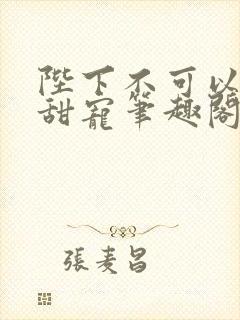 陛下不可以
甜寵筆趣閣
張麦昌